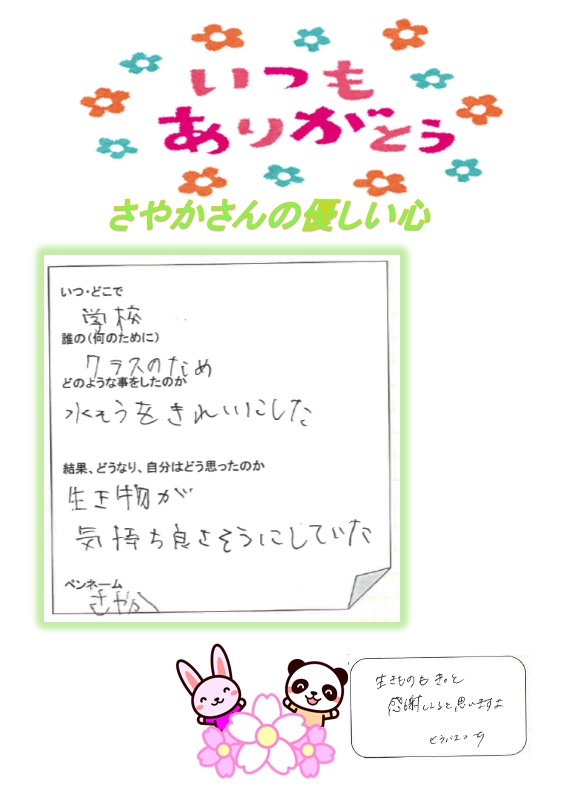 いつも
ありがとう
さやかさんの優しい心
いつ・どこで
学校
誰の(何のために)
クラスのため
どのような事をしたのか
水そうをきれいにした
結果、どうなり、自分はどう思ったのか
生き物が
気持ち良さそうにしていた
ペンネーム
さやか
生きものもきっと
感謝していると思いますよ